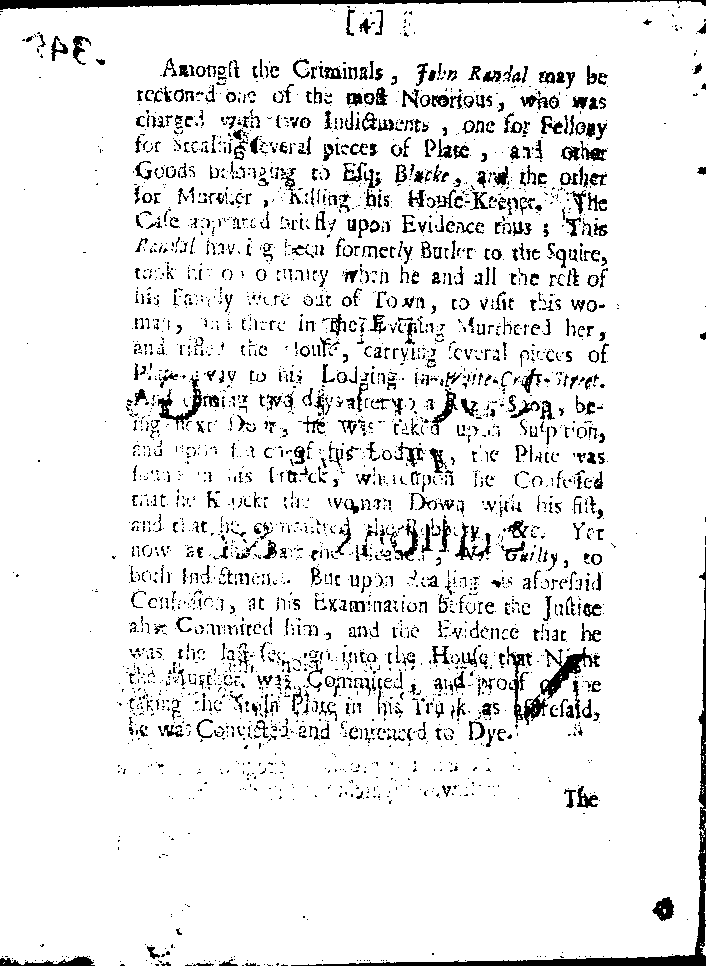 [4]
345
Amongſt the Criminals, John Randal may be
reckoned one of the moſt Notorious, who was
charged with two Indictments, one for Fellony
for Stealing ſeveral pieces of Plate, and other
Goods belonging to Eſq; Blacke, and the other
for Murther, Killing his Houſe-Keeper. The
Caſe appeared briefly upon Evidence thus; This
Randal having been formerly Butler to the Squire,
took his opportunity when he and all the reſt of
his Family were out of Town, to viſit this wo-
man, and there in the Evening Murthered her,
and rifled the Houſe, carrying ſeveral pieces of
Plate away to his Lodging in White-Croſs-Street.
And coming two days after to a Shop, be-
ing next Door, he was taken upon Suſpition,
and upon ſearch of his Lodging, the Plate was
found in his Trunck, whereupon he Confeſſed
that he Knockt the woman Down with his fiſt,
and that he committed the Robbery, &c. Yet
now at the Barr he Pleaded, Not Guilty, to
both Indictments. But upon Reading his aforeſaid
Confeſſion, at his Examination before the Juſtice
that Commited him, and the Evidence that he
was the laſt ſeen go into the Houſe that Night
the Murther was Commited, and proof of the
taking the Stoln Plate in his Trunk as aforeſaid,
he was Convicted and Sentenced to Dye.
The